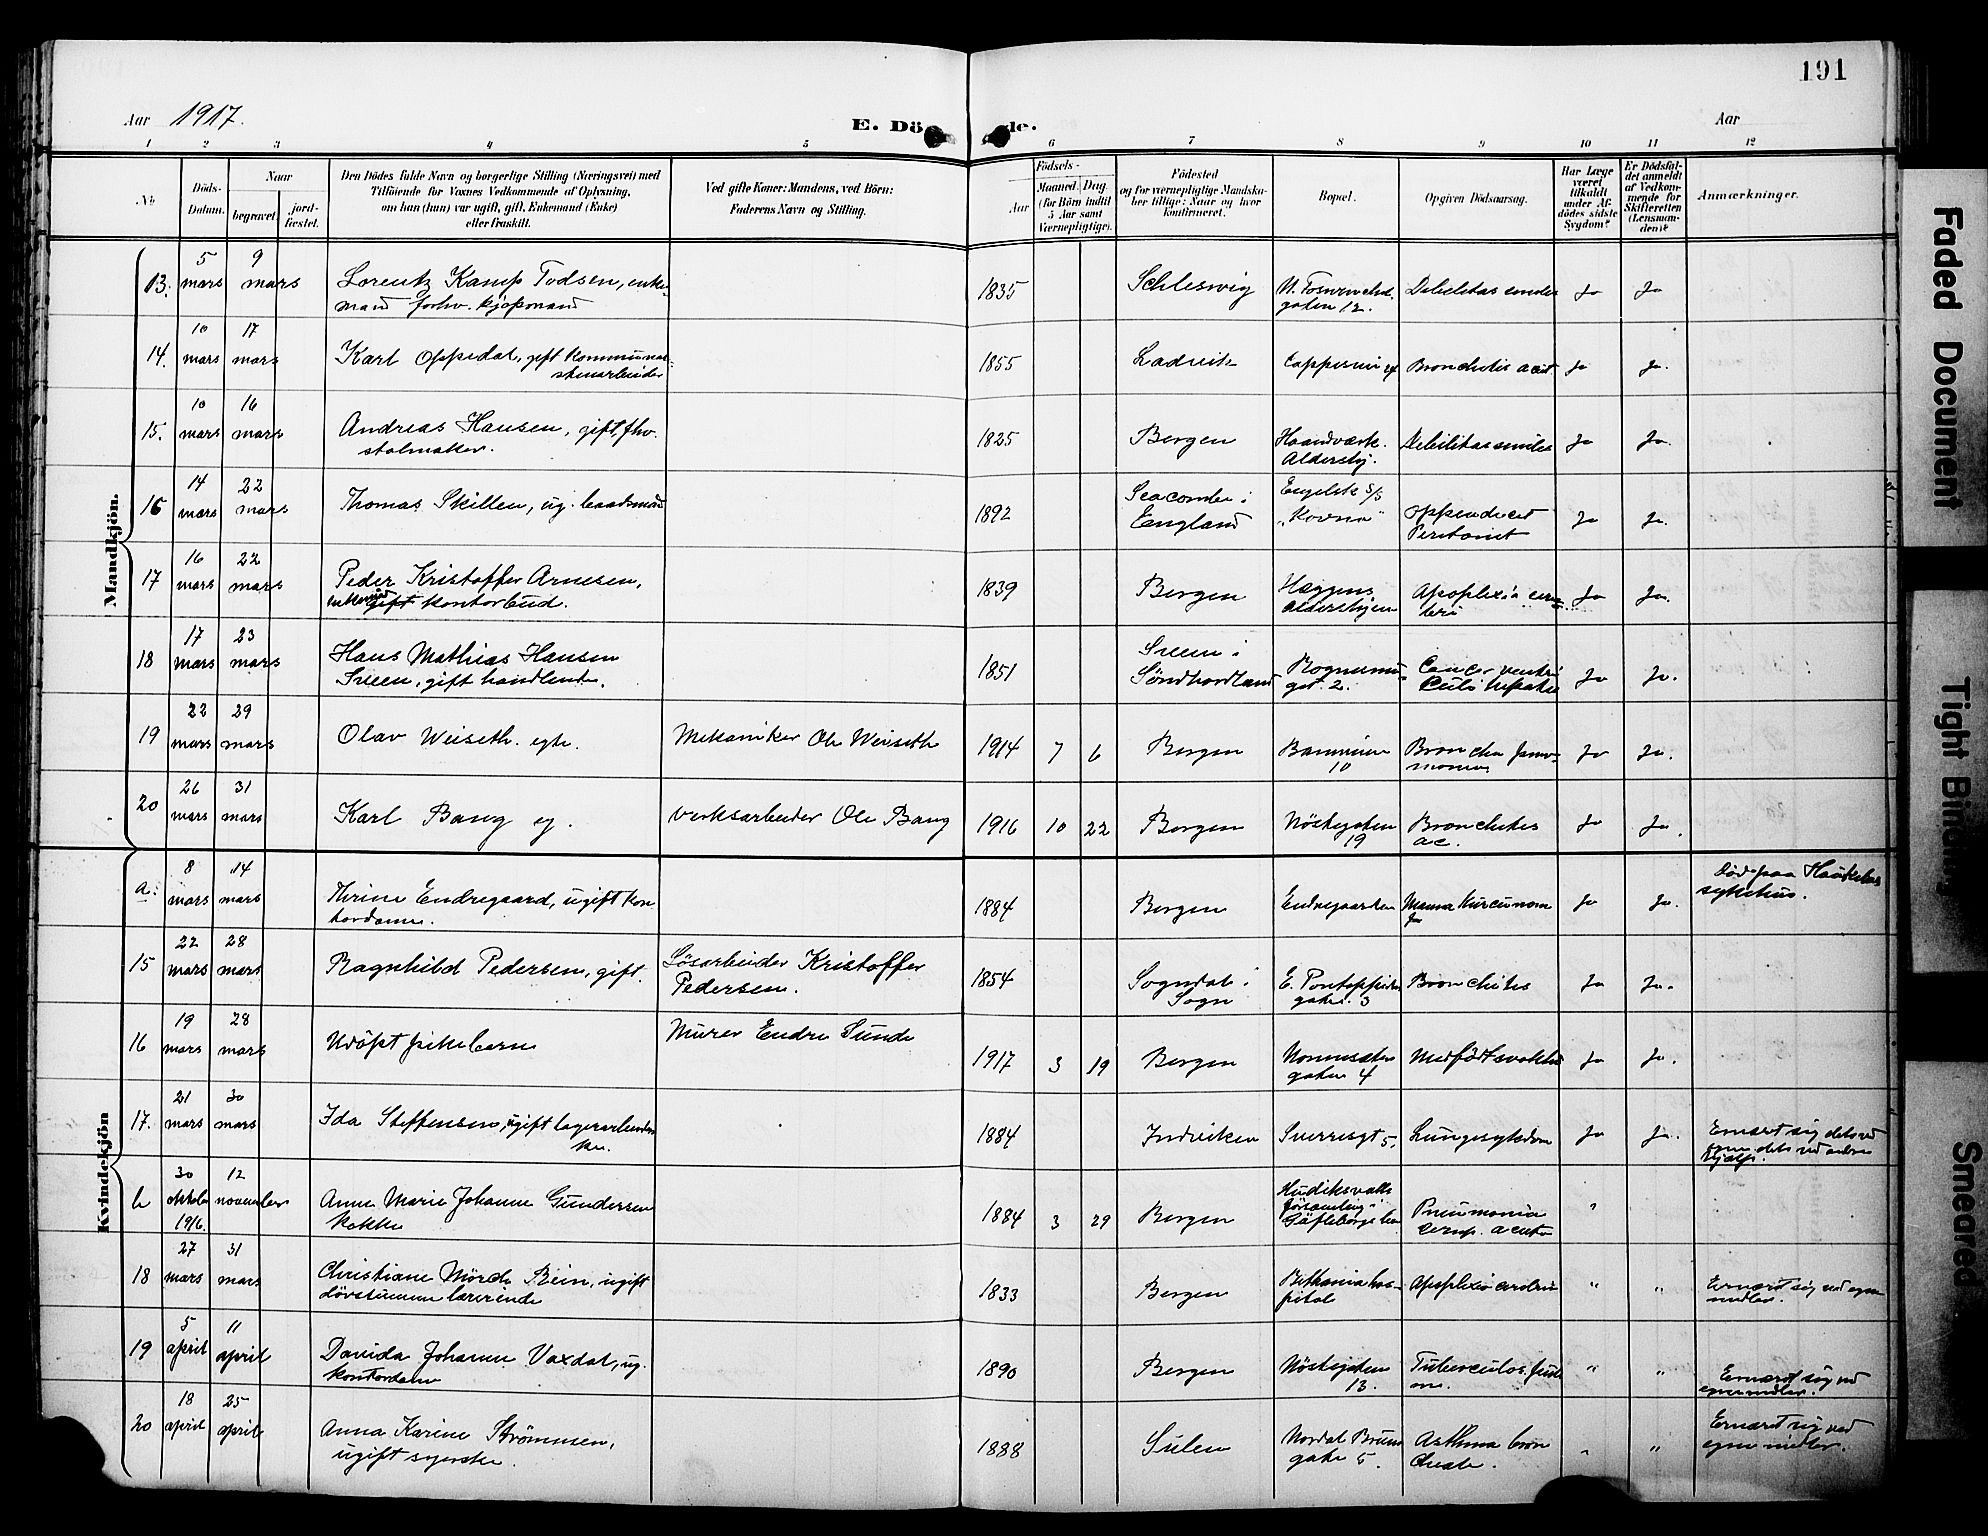 191
Aar 1917.
E. Dö de.
Aar
1 2 3 4 5 6 7 8 9 10 11 12
No
Döds-Datum.
Naar
begravet.
jord-fæstet.
Den Dödes fulde Navn og borgerlige Stilling (Næringsvei) med
Tilföiende for Voxnes Vedkommende af Oplysning,
om han (hun) var ugift, gift, Enkemand (Enke)
eller fraskilt.
Ved gifte Koner: Mandens, ved Börn:
Faderens Navn og Stilling.
Födsels-
Aar
Maaned. Dag.
(for Börn indtil
5 Aar samt
Værnepligtige).
Födested
og for værnepligtige Mandska-
ber tillige: Naar og hvor
konfirmeret.
Bopæl.
Opgiven Dödsaarsag.
Har Læge
været
tilkaldt
under Af-
dödes sidste
Sygdom?
Er Dödsfal-
det anmeldt
af Vedkom-
mende for
Skifteretten
(Lensman-
den)?
Anmærkninger.
Mandkjön.
13. 5 mars 9 mars Lorentz Kamp Todsen, enke-
mand forhv. kjøpmand 1835 Schlesvig gaten 12. Debilitas senilis Ja Ja
14. 10 mars 17 mars Karl Oppedal, gift kommunal-
stenarbeider 1855 Ladvik Bronchitis acut Ja Ja.
15. 10 mars 16 mars Andreas Hansen, gift, fhv.
stolmaker. 1825 Bergen Haandværk.
Aldershj. Debilitas senilis Ja Ja.
16 14 mars 22 mars Thomas Skillen, ug. baadsmand 1892 Seacombe i
England Engelsk S/S
"Kovno" Appendicit
Peritonit Ja Ja.
17 16 mars 22 mars Peder Kristoffer Arnesen,
enkemand gift kontorbud. 1839 Bergen Hæggens
Aldershjem Apoplexia cere-
bri Ja Ja.
18 17 mars 23 mars Hans Mathias Hansen
Sveen, gift handlende. 1851 Sveen i
Søndhordland gt. 2. Cancer ventri
culi hepatis Ja Ja.
19 22 mars 29 mars Olav Weiseth. egte. Mekaniker Ole Weiseth 1914 7 6 Bergen 10 Broncho pnev-
monia Ja Ja.
20 26 mars 31 mars Karl Bang eg. Verksarbeider Ole Bang 1916 10 22 Bergen Nöstegaten
19 Bronchitis
ac. Ja Ja.
Kvindekjön
a. 8 mars 14 mars Thrine Endregaard, ugift kon-
tordame. 1884 Bergen Endregaarden Ja Ja. Död paa Haukeland
sykehus.
15 22 mars 28 mars Ragnhild Pedersen, gift. Løsarbeider Kristoffer
Pedersen. 1854 Sogndal i
Sogn E. Pontoppidan
gaten 3 Bronchitis Ja Ja.
16 19 mars 28 mars Udöpt pikebarn Murer Endre Sunde 1917 3 19 Bergen Nonneseter
gaten 4 Medfödt svakhet Ja Ja.
17. 21 mars 30 mars Ida Steffensen, ugift lagerarbeiders
ke. 1884 Indviken Sverresgt 5. Lungesykdom Ja Ja. Ernært sig dels ved
egne, dels ved andres
hjælp.
b 30 oktober 1916. 12 november Anne Marie Johanne Gundersen
kokke 1884 3 29 Bergen Hudiksvalls
församling i
Gäfleborgs län Pneumonia
crup. acuta "
18 27 mars 31 mars Christiane Mörch Bein, ugift
dövstumme lærerinde 1833 Bergen Bethania hos-
pital Apoplexia cerebri " " Ernært sig ved egne
midler.
19 5 april 11 april Davida Johanne Vaxdal, ug.
kontordame 1890 Bergen Nöstegaten
13. Tuberculos. " " Ernært sig ved
egne midler.
20 18 april 25 april Anna Karine Strömmen,
ugift syerske. 1888 Sulen Nordal Bruns
gate 5. Asthma bron
chiale. " " Ernæret sig ved
egne midler.
Faded Document
Tight Binding
Smeared